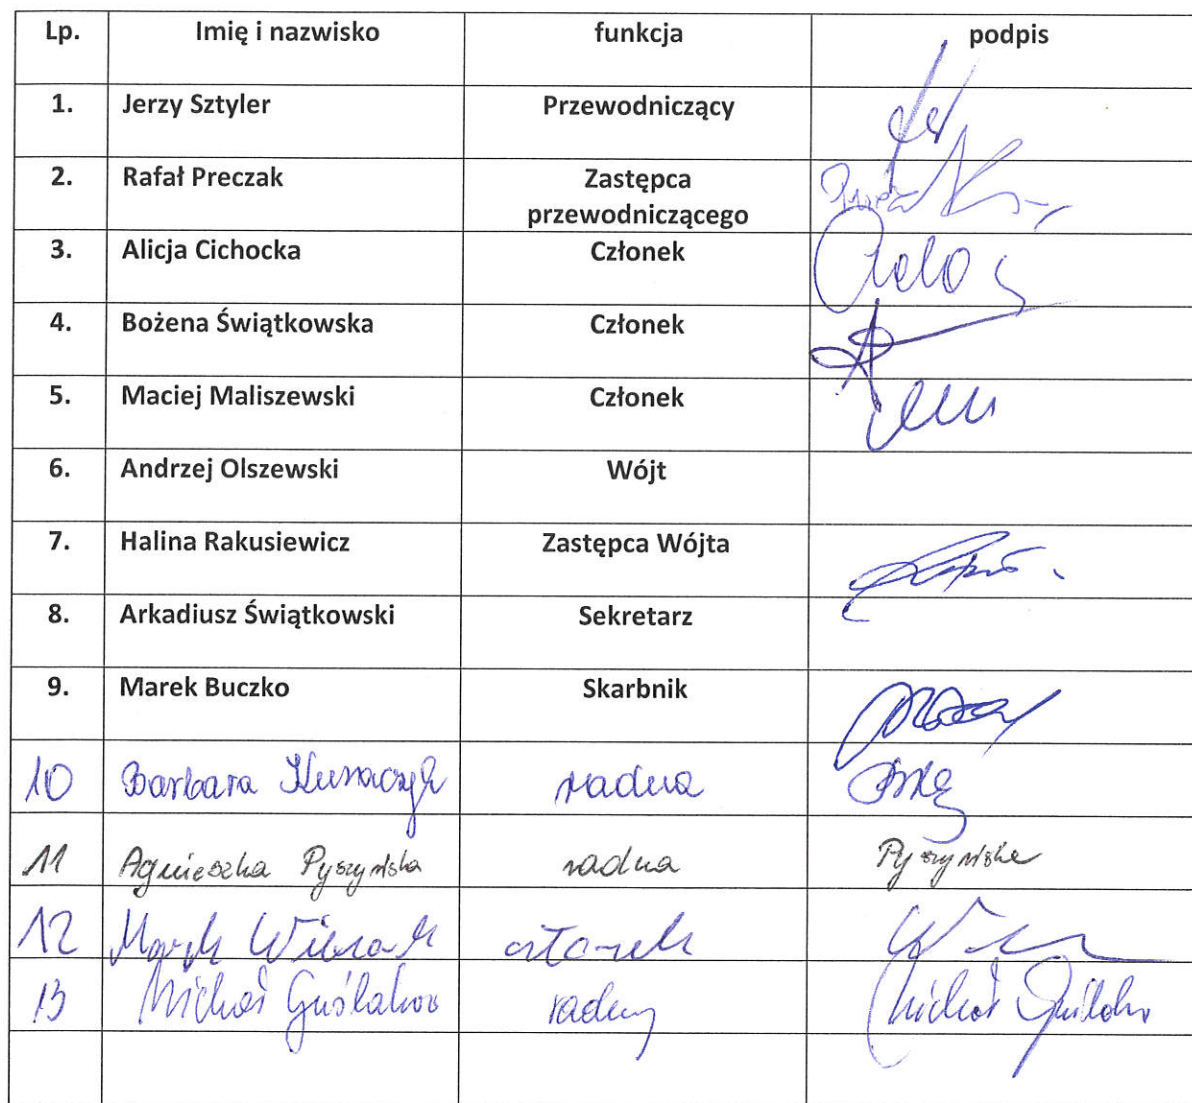 Lp. Imię i nazwisko funkcja podpis
1. Jerzy Sztyler Przewodniczący
2. Rafał Preczak Zastępca
przewodniczącego
3. Alicja Cichocka Członek
4. Bożena Świątkowska Członek
5. Maciej Maliszewski Członek
6. Andrzej Olszewski Wójt
7. Halina Rakusiewicz Zastępca Wójta
8. Arkadiusz Świątkowski Sekretarz
9. Marek Buczko Skarbnik
10 Barbara radna
11 Agnieszka Pyszyńska radna Pyszyńska
12 Marek członek
13 Michał radny Michał